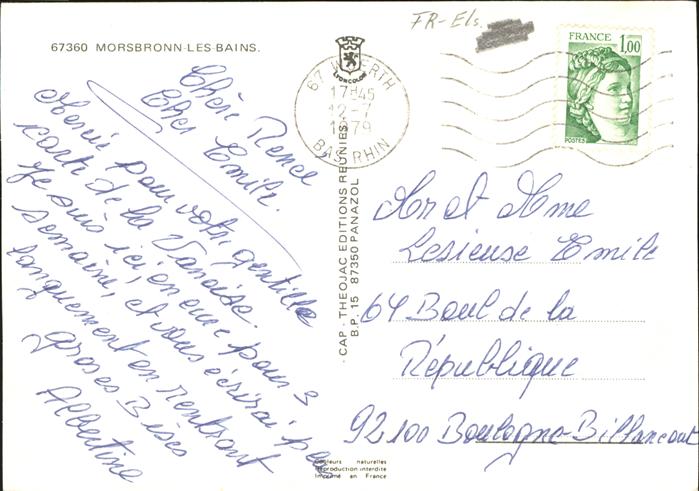 67360 MORSBRONN-LES-BAINS.
FR-Els.
LYONCOLOR
67 WOERTH
17H45
12-7
1979
BAS RHIN
FRANCE
1,00
POSTES
Chère Renee
Cher Emile.
Merci pour votre gentille
carte de la Vanoise.
Je suis ici en cure pour 3
semaine, et vous écrirai plus
longuement en rentrant
groses Bises
Albertine
CAP - THEOJAC EDITIONS REUNIES
B.P. 15 87350 PANAZOL
Mr et Mme
Lesieuse Emile
64 Boul de la
République
92100 Boulogne-Billancourt
Couleurs naturelles
Reproduction interdite
Imprimé en France